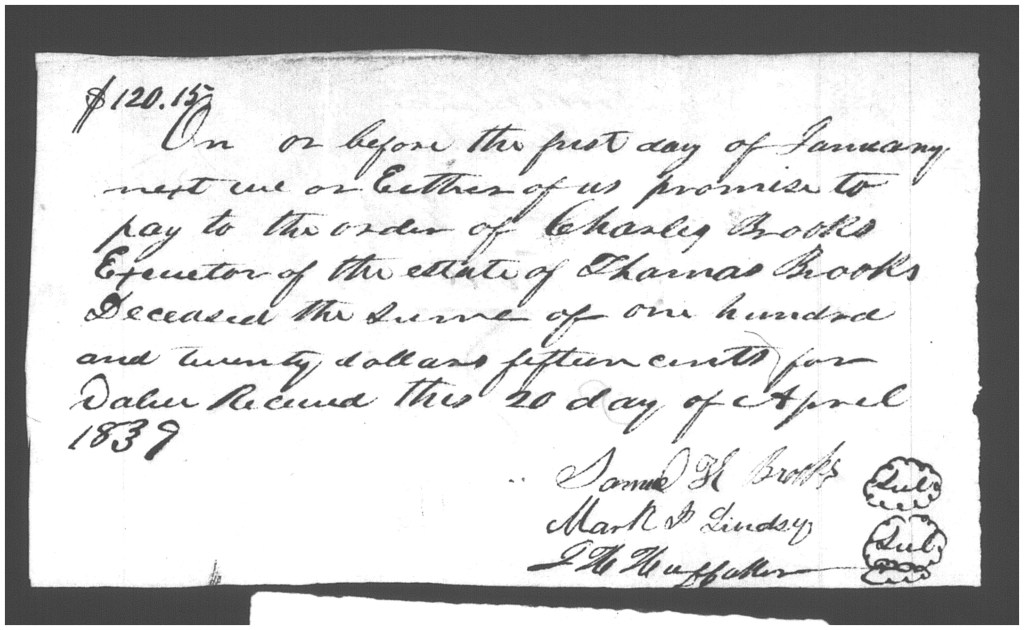 $120.15
On or before the first day of January
next we or Either of us promise to
pay to the order of Charles Brooks
Executor of the estate of Thomas Brooks
Deceased the sume of one hundrd
and twenty dollars fifteen cents for
Value Received this 20 day of April
1839
Samuel H Brooks
Mark Lindsy
J H Huffaker